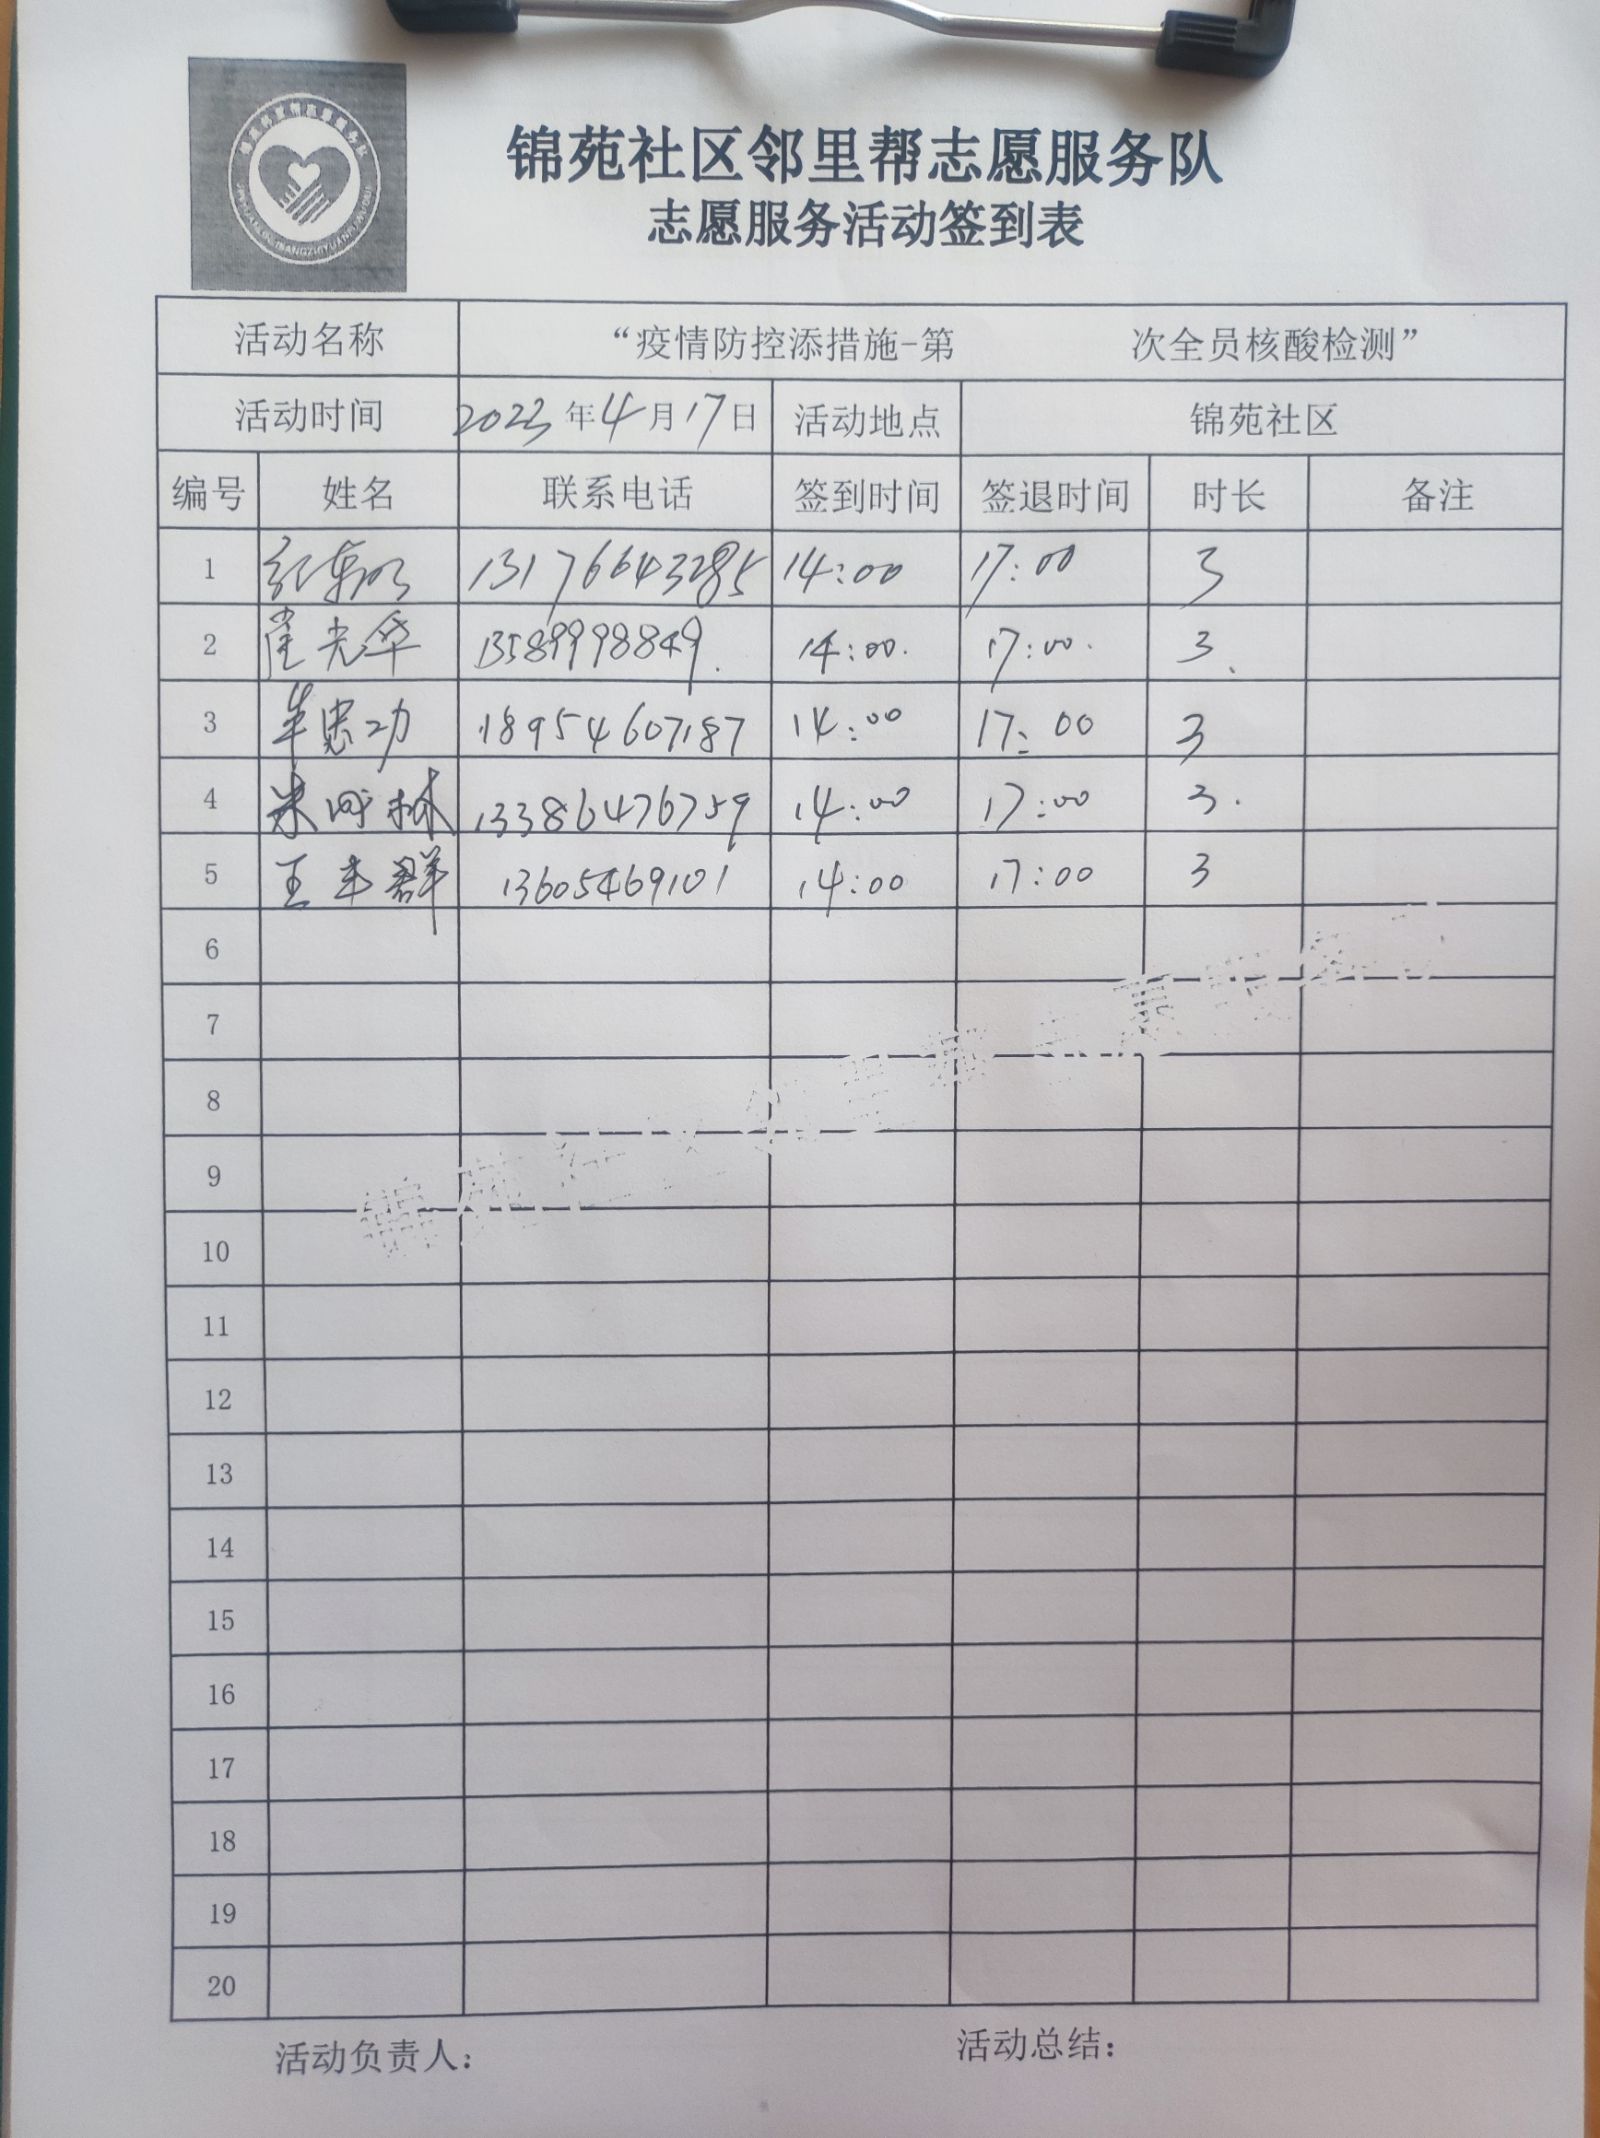 锦苑社区邻里帮志愿服务队
志愿服务活动签到表
活动名称 “疫情防控添措施-第 次全员核酸检测”
活动时间 2023年4月17日 活动地点 锦苑社区
编号 姓名 联系电话 签到时间 签退时间 时长 备注
1 13176643285 14:00 17:00 3
2 崔光华 13589998849. 14:00. 17:00. 3.
3 牟忠功 18954607187 14:00 17:00 3
4 13386476759 14:00 17:00 3.
5 王丰群 13605469101 14:00 17:00 3
6
7
8
9
10
11
12
13
14
15
16
17
18
19
20
活动负责人: 活动总结: